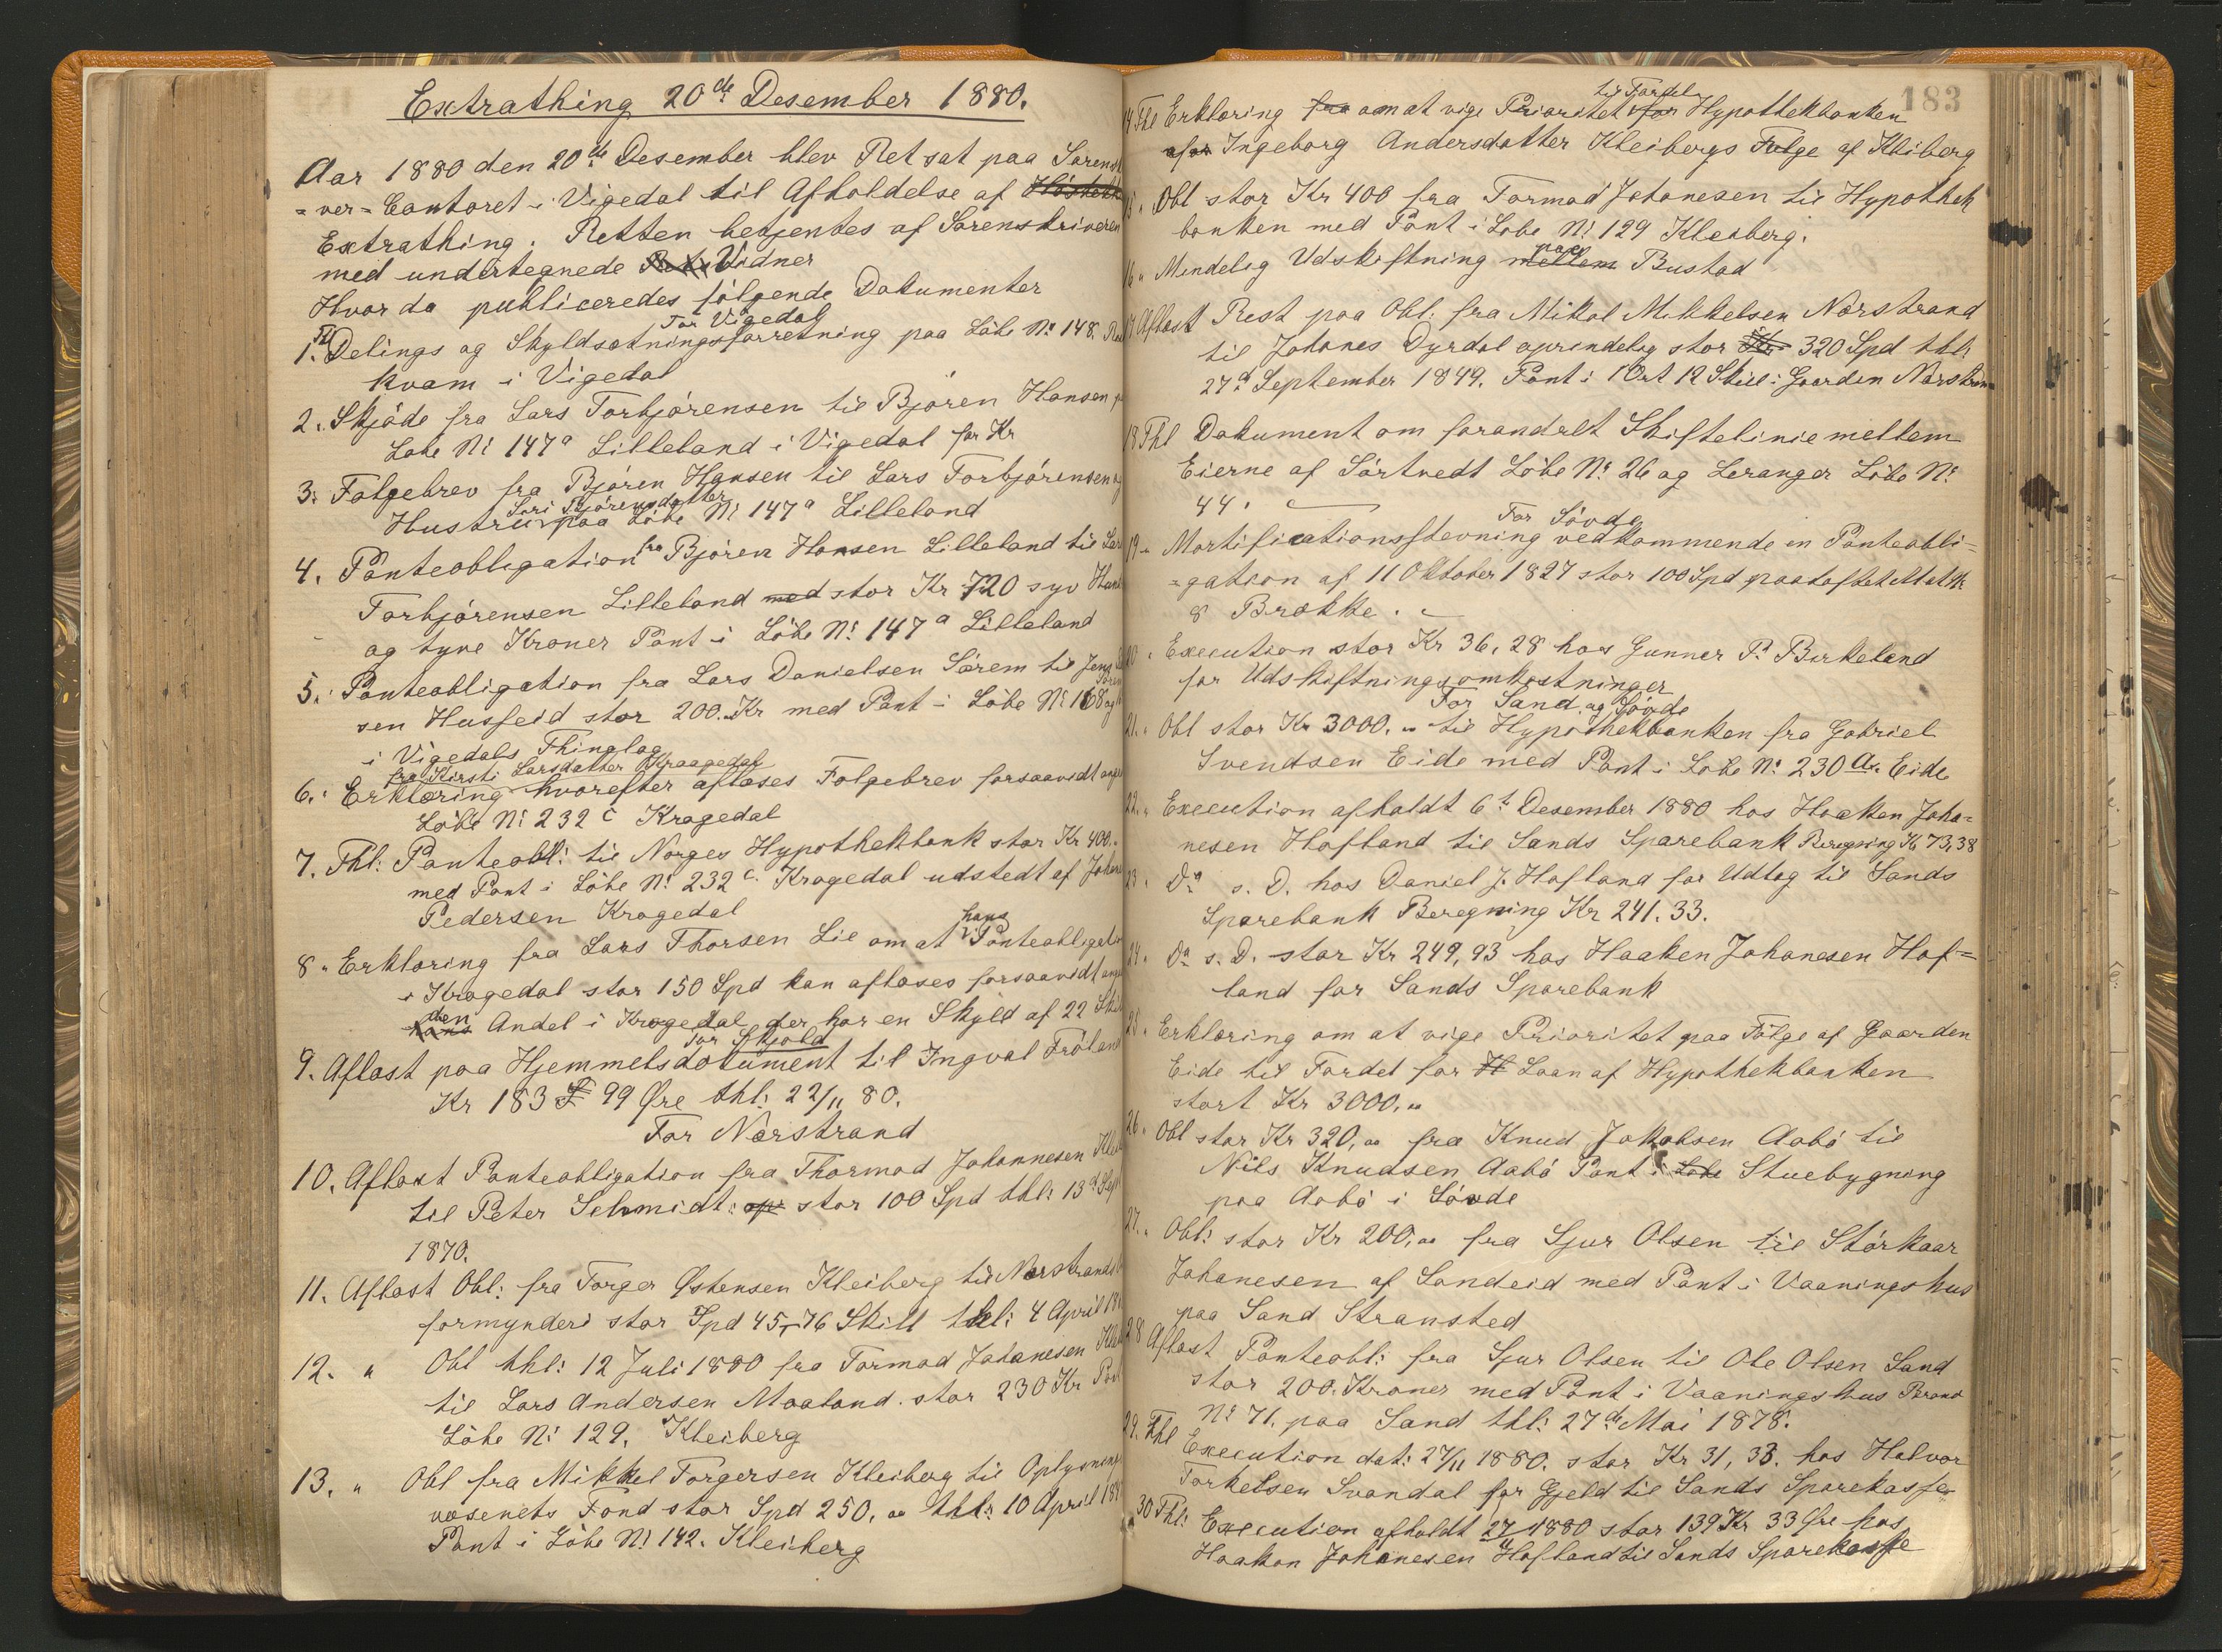 Extrathing 20de Desember 1880.
Aar 1880 den 20de Desember blev Ret sat paa Sorenskri
=ver=Contoret i Vigedal til Afholdelse af
Extrathing. Retten betjentes af Sorenskriveren
med undertegnede Vidner
Hvor da publiceredes følgende Dokumenter
For Vigedal
1. Thl Delings og Skyldsætningsforretning paa Løbe No 148.
Kvam i Vigedal
2. Skjøde fra Lars Torbjørensen til Bjøren Hansen
Løbe No 147a Lilleland i Vigedal for Kr
3. Følgebrev fra Bjøren Hansen til Lars Torbjørensen og
Hustru Siri Bjørensdatter paa Løbe No 147a Lilleland
4. Panteobligation fra Bjøren Hansen Lilleland til Lars
Torbjørensen Lilleland med stor Kr 720 syv Hun
og tyve Kroner Pant i Løbe No 147a Lilleland
5. Panteobligation fra Lars Danielsen Sørem til Jens
sen Husfeid stor 200. Kr med Pant i Løbe No 168 og
i Vigedals Thinglag
fra Kirsti Larsdatter Kraagedal
6. Erklæring hvorefter afløses Følgebrev forsaavidt ang
Løbe No 232 c Kragedal
7. Thl: Panteobl: til Norges Hypothekbank stor Kr 400.
med Pant i Løbe No 232 c. Kragedal udstedt af Johan
Pedersen Kragedal
8 " Erklæring fra Lars Thorsen Lie om at hans Panteobligation
i Kragedal stor 150 Spd kan afløses forsaavidt ang
den Andel i Kragedal der har en Skyld af 22 Skil
For Skjold
9. Aflæst paa Hjemmelsdokument til Ingval Frøland
Kr 183 99 Øre thl: 22/11 80.
For Nærstrand
10. Aflæst Panteobligation fra Thormod Johannesen Klei
til Peter Schmidt: stor 100 Spd thl: 13d Sept
1870.
11. Aflæst Obl: fra Torger Østensen Kleiberg til Nærstrands
formynderi stor Spd 45,-76 Skill thl: 4 April 18
12. " Obl thl: 12 Juli 1880 fra Tormod Johanesen Klei
til Lars Andersen Maaland. stor 230 Kr Pant
Løbe No 129. Kleiberg
13. " Obl fra Mikkel Torgersen Kleiberg til Oplysnings
væsenets Fond stor Spd 250, " thl: 10 April 18
Pant i Løbe No 142. Kleiberg
183
til Fordel
14 Thl Erklæring fra om at vige Prioritet for Hypothekbanken
Ingeborg Andersdatter Kleibergs Følge af Kleiberg
15 " Obl stor Kr 400 fra Tormod Johanesen til Hypothek
banken med Pant i Løbe No 129 Kleiberg.
16 " Mindelig Udskiftning mellem paa Bustad
17 Aflæst Rest paa Obl. fra Mikal Mikkelsen Nærstrand
til Johanes Dyrdal oprindelig stor Kr 320 Spd thl:
27d September 1849. Pant i 1 Ort 12 Skill: Gaarden Nærstran
18 Thl Dokument om forandret Skiftelinie mellem
Eierne af Sørtvedt Løbe No 26 og Leranger Løbe No
44.
For Søvde
19 " Mortificationsstevning vedkommende en Panteobli=
=gation af 11 Oktober 1827 stor 100 Spd paa Matr
8 Brække.
20 " Execution stor Kr 36,28 hos Gunner P. Birkeland
for Udskiftningsomkostninger
For Sand og Søvde
21. " Obl stor Kr 3000. " til Hypothekbanken fra Gabriel
Svendsen Eide med Pant i Løbe No 230 a. Eide
22. " Execution afholdt 6te Desember 1880 hos Haaken Joha=
nesen Hofland til Sands Sparebank Beregning Kr 73,38
23. Do s. D. hos Daniel J. Hofland for Udlæg til Sands
Sparebank Beregning Kr 241.33.
24. " Do s. D. stor Kr 249,93 hos Haaken Johanesen Hof=
land for Sands Sparebank
25. Erklæring om at vige Prioritet paa Følge af Gaarden
Eide til Fordel for H Laan af Hypothekbanken
stort Kr 3000. "
26. " Obl stor Kr 320, " fra Knud Jakobsen Aabø til
Nils Knudsen Aabø Pant i Løbe Stuebygning
paa Aabø i Søvde
27. " Obl: stor Kr 200, " fra Sjur Olsen til Størkaar
Johanesen af Sandeid med Pant i Vaaningshus
paa Sand Strandsted
28 Aflæst Panteobl: fra Sjur Olsen til Ole Olsen Sand
stor 200. Kroner med Pant i Vaaningshus Brand
No 71. paa Sand thl: 27de Mai 1878.
29. Thl Execution dat: 27/11 1880. stor Kr 31,33. hos Halvor
Torkelsen Svandal for Gjeld til Sands Sparekasse
30 Thl: Execution afholdt 27/11 1880 stor 139 Kr 33 Øre hos
Haakon Johanesen Hofland til Sands Sparekasse